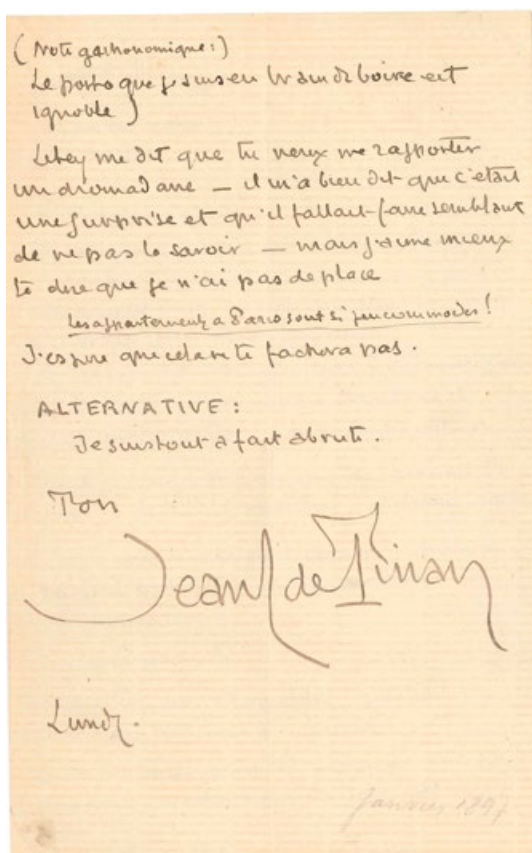 (Note gastronomique:)
Le porto que je suis en train de boire est
ignoble)
Lebey me dit que tu veux me rapporter
un dromadaire — il m'a bien dit que c'était
une surprise et qu'il fallait faire semblant
de ne pas le savoir — mais j'aime mieux
te dire que je n'ai pas de place
Les appartements à Paris sont si peu commodes !
J'espère que cela ne te fachera pas.
ALTERNATIVE :
Je suis tout à fait abruti.
Ton
Jean de Tinan
Lundi.
Janvier 1897